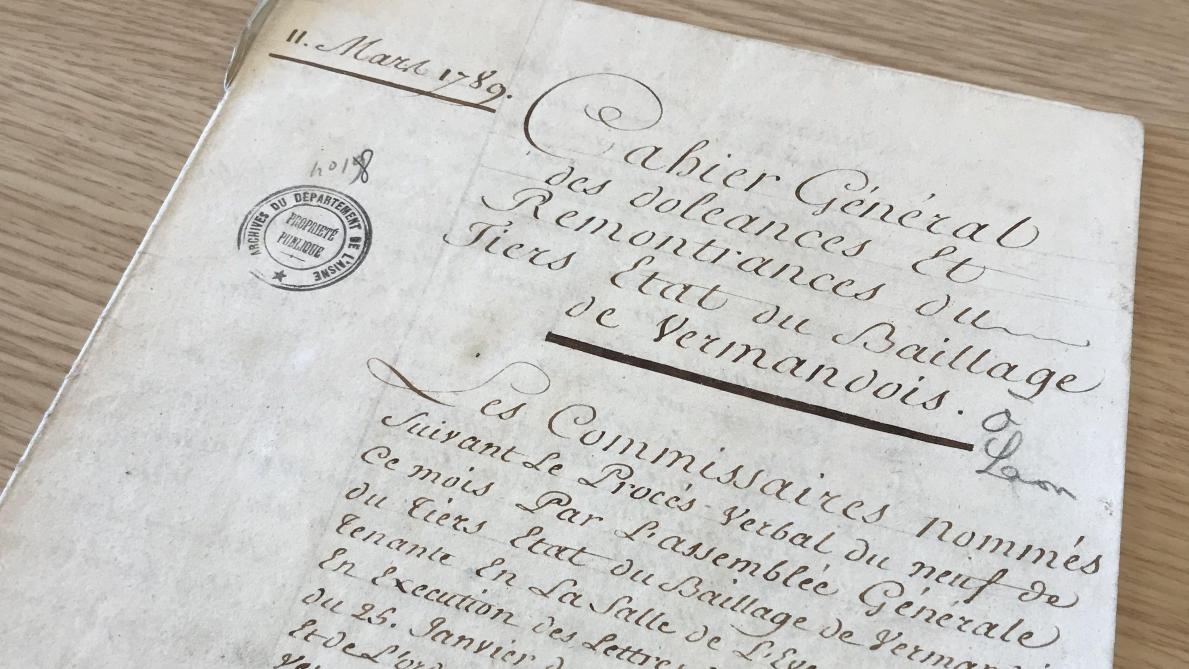 11. Mars 1789.
no 18
ARCHIVES DU DÉPARTEMENT DE L'AISNE
PROPRIETÉ
PUBLIQUE
Cahier Général
des doleances Et
Remontrances du
Tiers Etat du Baillage
de Vermandois.
Laon
Les Commissaires nommés
Suivant Le Procés Verbal du neuf de
Ce mois Par L'assemblée Générale
du Tiers Etat du Baillage de Verman
tenante En La Salle de L'Eve
En Execution des Lettres
du 25. Janvier d
Et de L'ord
Ver